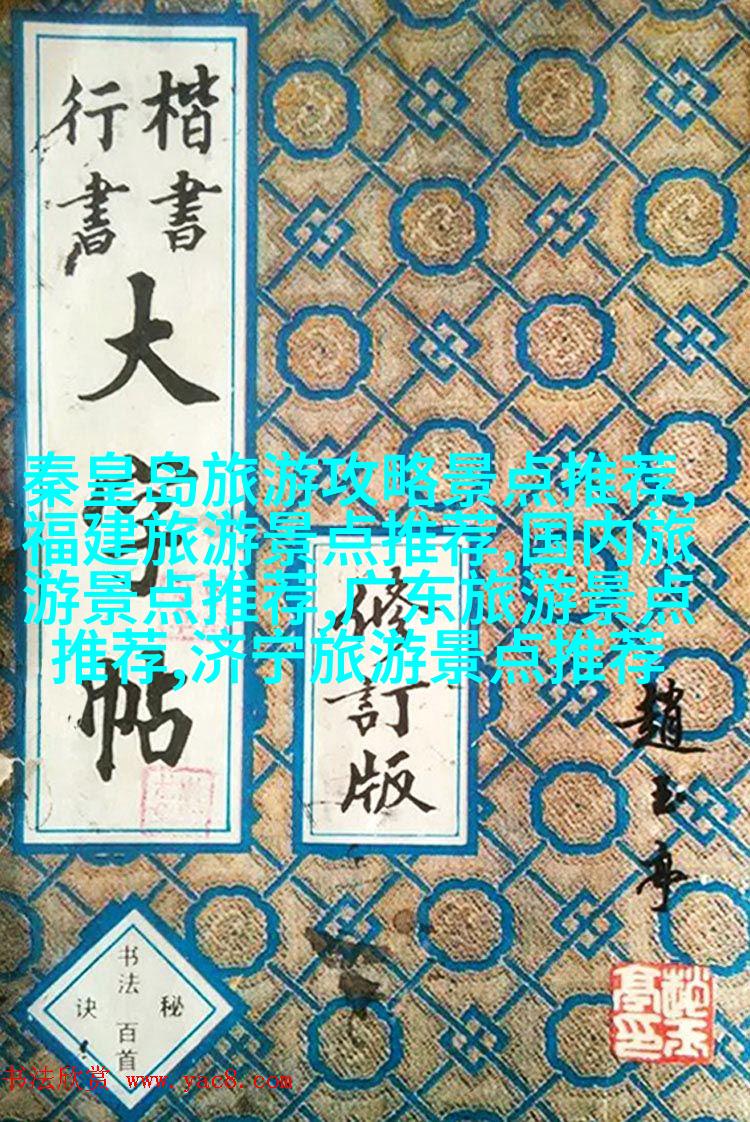 楷書
行書
大字帖
秦皇岛旅游攻略景点推荐,
福建旅游景点推荐,国内旅
游景点推荐,广东旅游景点
推荐,济宁旅游景点推荐
修訂版
趙玉亭
书法
百首
秘
诀
书法欣赏 www.yac8.com